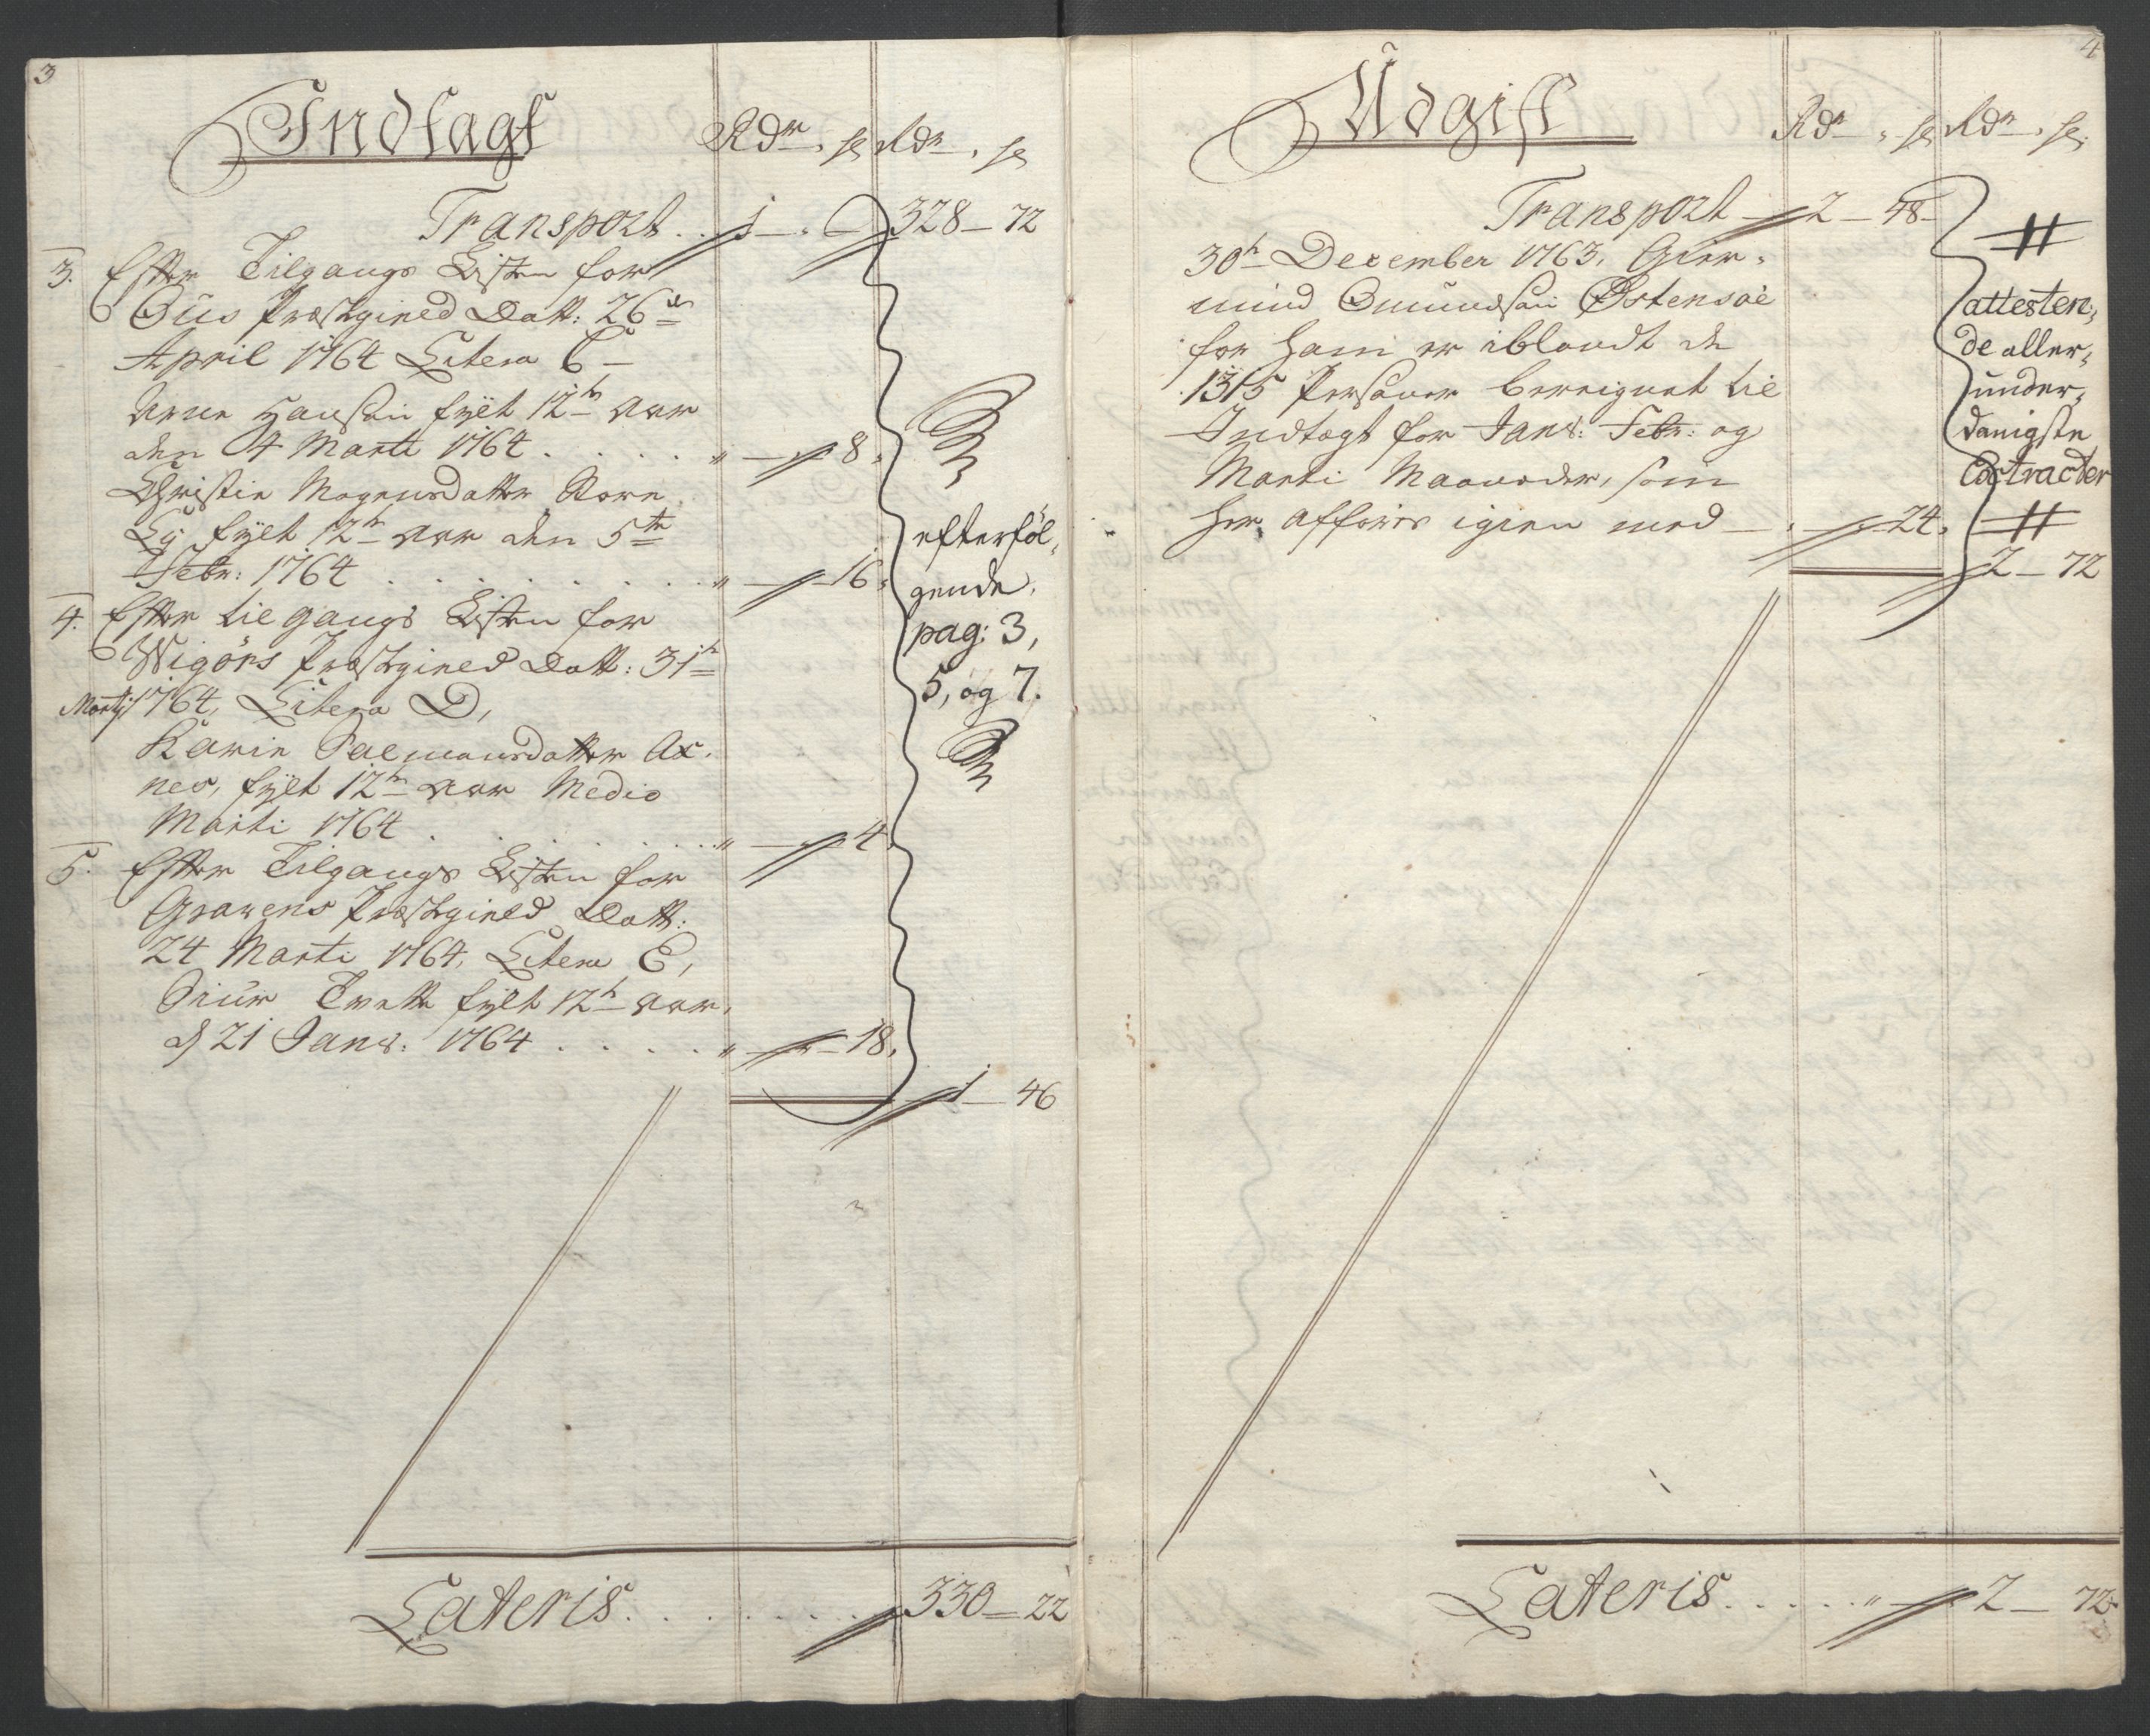 3
Indtægt
Rdr. ſs Rdr. ſs
Transport . . 1 — . — 328 — 72
3. Efter Tilgangs Listen for
Øus Præstegield Datt: 26de
April 1764 Litera C —
Arne Hansen fyldt 12te Aar
den 4 Marti 1764 . . . . . " — 8.
Christin Mognusdatter
Ly fyldt 12te Aar den 5te
Febr: 1764 . . . . . . . . " — 16.
4. Efter tilgangs Listen for
Wigörs Præstegield Datt: 31te
Martij 1764, Litera D,
Karin Salmonsdatter Ax-
nes, fyldt 12te Aar Medio
Marti 1764 . . . . . . . " — 4.
5. Efter Tilgangs Listen for
Gravens Præstegield Datt:
24 Marti 1764, Litera E,
Siur Tvette fyldt 12te Aar,
d 21 Janv: 1764 . . . . . " — 18.
efterföl-
gende.
pag: 3,
5, og 7.
1 — 46
Lateris . . . . . . . 330 — 22
4
Udgift
Rdr. ſs Rdr. ſs.
Transport — 2 — 48 —
30te December 1763. Gier-
mund Omundsøn Østensøe
for ham er iblandt de
1315 Persåner bereignet til
Indtægt for Janv: Febr: og
Marti Maaneder, som
her afføres igien med — . — 24.
attesteren-
de aller-
under-
danigste
Extracter
2 — 72
Lateris . . . . . " — 2 — 72